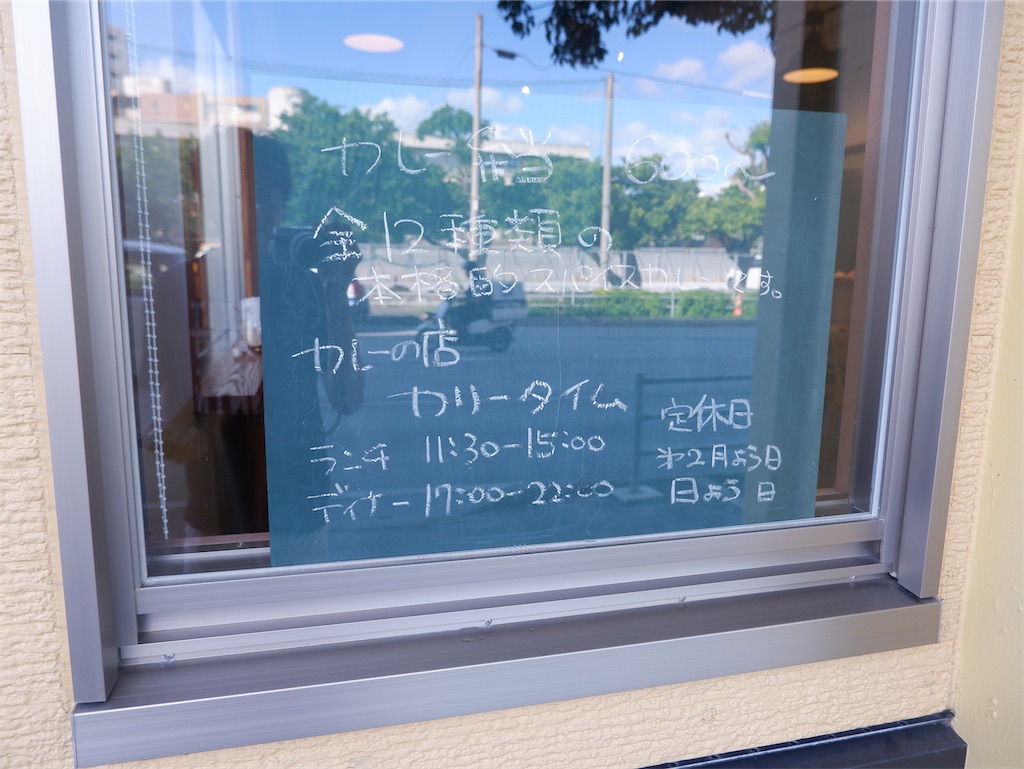 カレー弁当 600~
全12種類の
本格的スパイスカレーです。
カレーの店
カリータイム
ランチ 11:30-15:00
ディナー 17:00-22:00
定休日
才2月よう日
日よう日